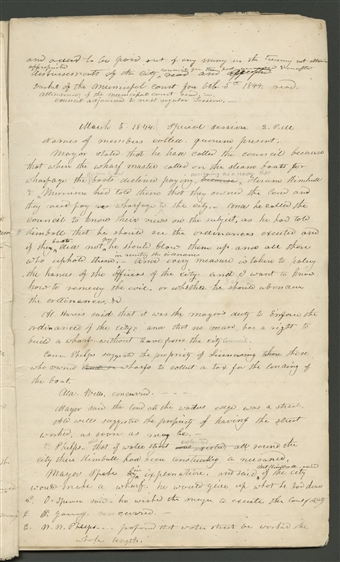 and agreed to be paid out of any money in the treasury not otherwise appropriated
disbursements of the city, read and accepted
Docket of the Municipal court for Feb 5th 1844. read.
adjourned to next regular session.
March 5 1844. Special session 2 P.M.
names of members called. quorum present.
Mayor stated that he had called the council because
that when the wharf master called on the steam boats for
wharfage the boats declined paying Hiram Kimball
& Mr. Morrison had told them that they owned the land and
they need pay no wharfage to the city. And he called the
council to know their views on the subject, as he had told
Kimball that he should see the ordinances executed and
if the boats did not pay he should blow them up, and all those
who upheld them in resisting the ordinances. and every measure is taken to
the hands of the officers of the city. and I want to know
how to remedy the evil. or whether he should abandon
the ordinances, &c
Ald. Harris said that it was the mayor's duty to enforce the
ordinances of the city, and that no man has a right to
build a wharf without leave from the city
Coun Phelps suggested the propriety of licensing those
who owned wharfs to collect a tax for the landing of
the boat.
Ald. Wells concurred.
Mayor said the land at the waters edge was a street.
Ald. Wells suggested the propriety of having the street
worked, as soon as may be.
Phelps. that if water street worked all round the
city then Kimball had been constantly a nuisance.
Mayor Spoke and said if the city
would make a wharf. he would give up what he had done
O. Spencer said he wished the mayor to execute the laws of the city
B. Young. concurred.
W. W. Phelps. proposed that water street be worked the
whole length.